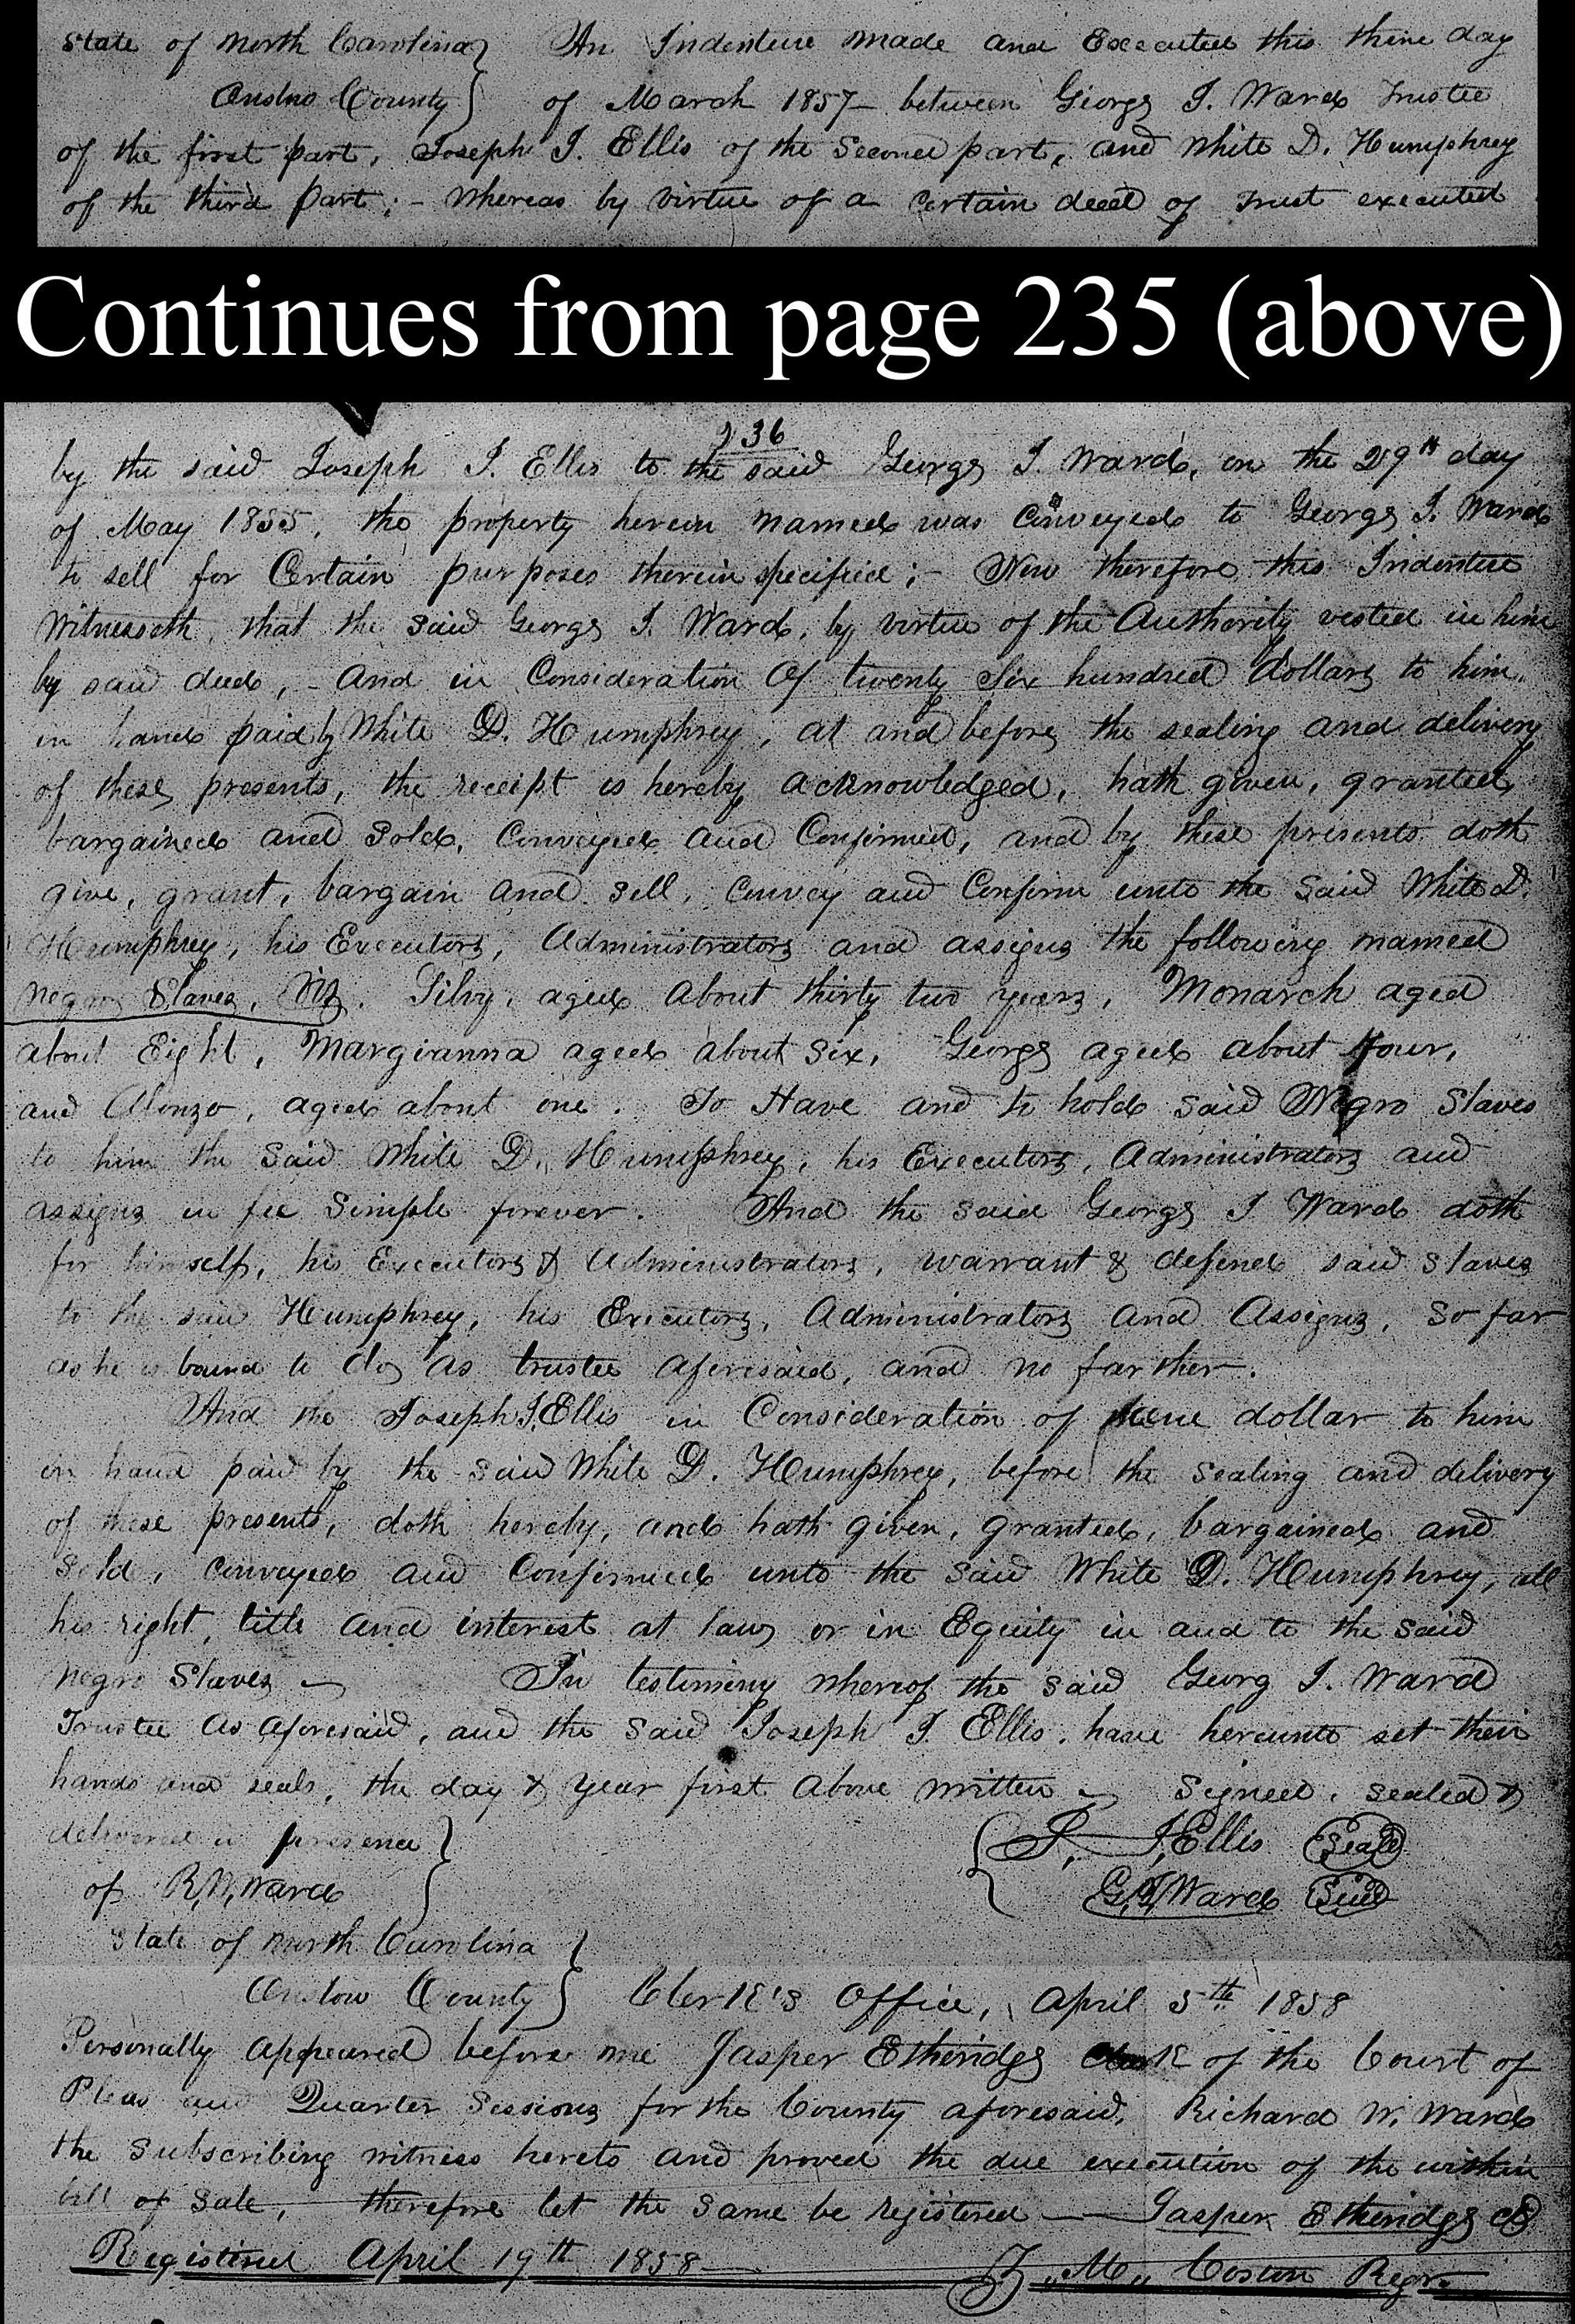 State of North Carolina} An Indenture made and Executed this day
Onslow County} of March 1857 between George J. Ward Trustee
of the first part, Joseph J. Ellis of the Second part, and White D. Humphrey
of the third part; - Whereas by virtue of a certain deed of Trust executed
Continues from page 235 (above)
236
by the said Joseph J. Ellis to the said George J. Ward, on the 29th day
of May 1855, the property herein named was Conveyed to George J. Ward
to sell for Certain purposes therein specified; - Now therefore this Indenture
Witnesseth, that the said George J. Ward, by virtue of the Authority vested in him
by said deed, - And in Consideration of twenty Six hundred dollars to him
in hand paid by White D. Humphrey, at and before the sealing and delivery
of these presents, the receipt is hereby acknowledged, hath given, granted,
bargained and sold, Conveyed and Confirmed, and by these presents doth
give, grant, bargain and sell, Convey and Confirm unto the said White D.
Humphrey, his Executors, Administrators and assigns the following named
Negro Slaves, Viz. Silvy, aged about thirty two years, Monarch aged
about Eight, Margianna aged about Six, George aged about four,
and Alonzo, aged about one. To Have and to hold said Negro Slaves
to him the said White D. Humphrey, his Executors, Administrators and
assigns in fee Simple forever. And the said George J Ward doth
for himself, his Executors & Administrators, warrant & defend said slaves
to the said Humphrey, his Executors, Administrators and Assigns, So far
as he is bound to do, as trustee aforesaid, and no farther.
And the Joseph J. Ellis in Consideration of dollar to him
in hand paid by the said White D. Humphrey, before the sealing and delivery
of these presents, doth hereby, and hath given, granted, bargained and
sold, conveyed and Confirmed unto the said White D. Humphrey, all
his right, title and interest at law or in Equity in and to the said
Negro Slaves - In testimony whereof the said Georg J. Ward
Trustee as aforesaid, and the said Joseph J. Ellis, have hereunto set their
hands and seals, the day & year first above written - Signed, sealed &
delivered in presence } { J. J. Ellis (Seal)
of R. W. Ward } G. J. Ward (Seal)
State of North Carolina }
Onslow County } Clerk's Office, April 5th 1858
Personally appeared before me Jasper Etheridge Clerk of the Court of
Pleas and Quarter Sessions for the County aforesaid, Richard W. Ward
the subscribing witness hereto and proved the due execution of the within
bill of sale, therefore let the same be registered — Jasper Etheridge
Registered April 19th 1858 M. Coston Regr.